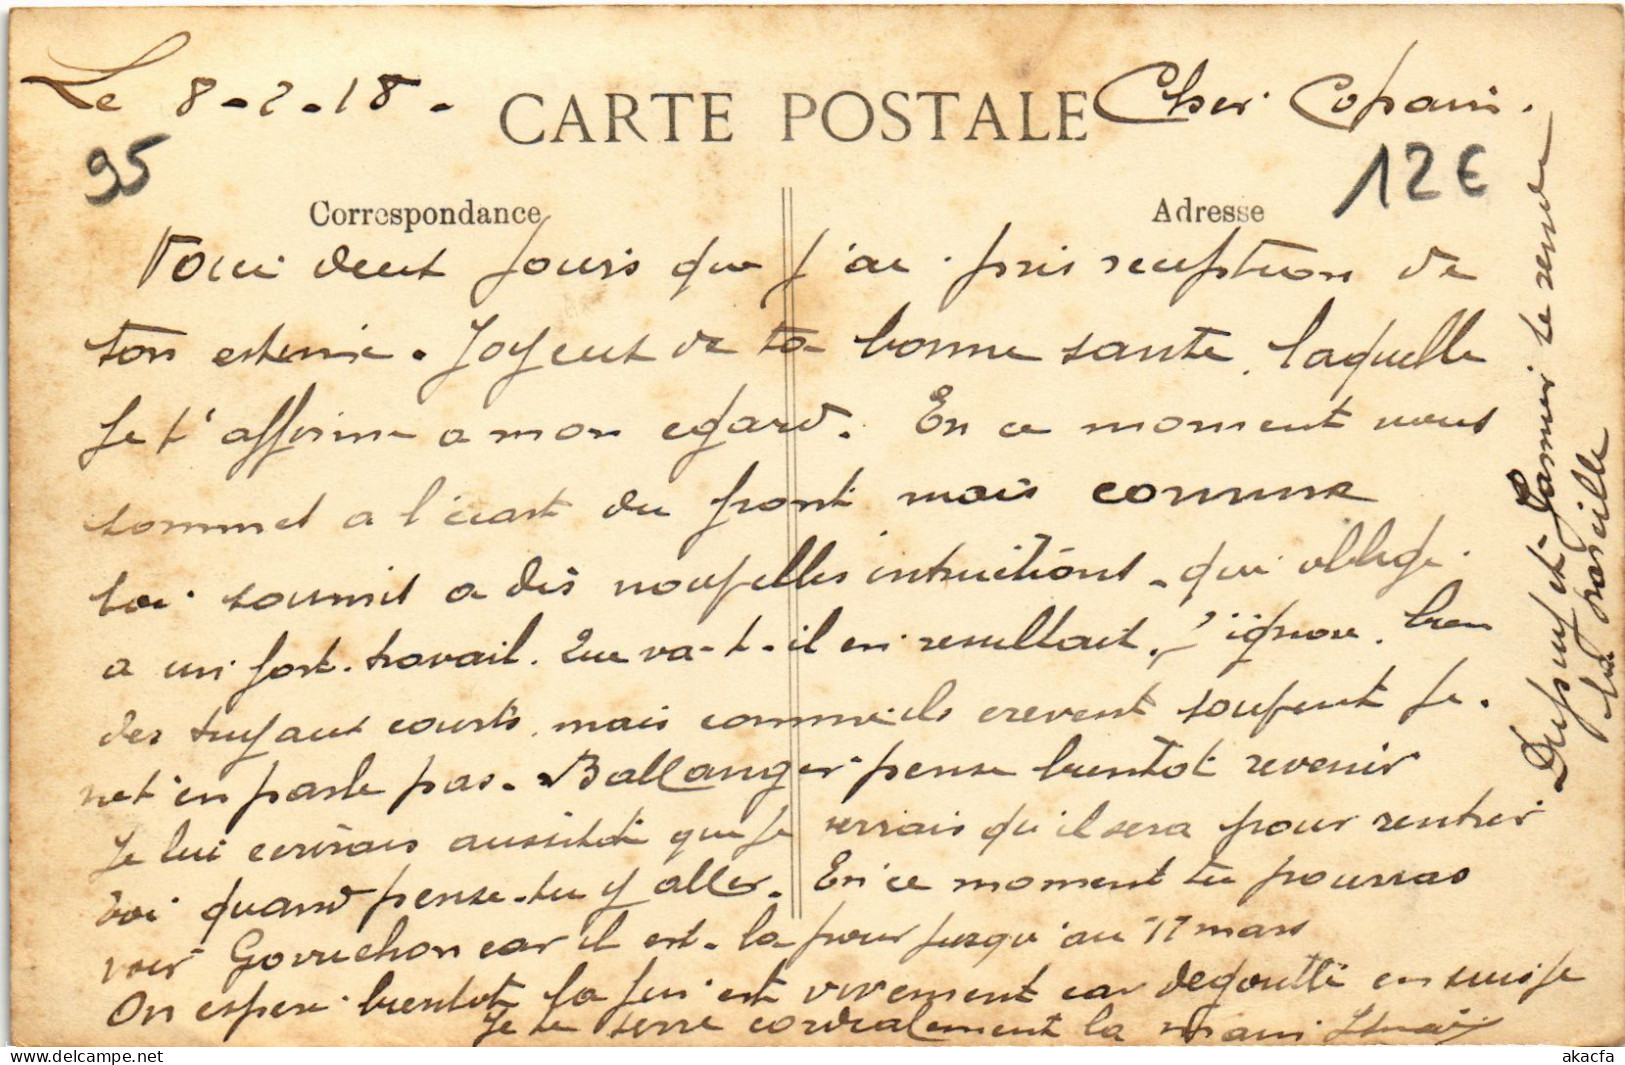 Le 8-2-18-
CARTE POSTALE
Cher Copain.
95
12€
Correspondance
Adresse
Voici deux jours que j'ai pris reception de
ton estimé. Joyeux de ta bonne sante, laquelle
je t'affirme a mon egard. En ce moment nous
sommes a l'écart du front mais comme
toi soumis a des nouvelles intruitions qui oblige
a un fort travail. Que va-t-il en resultait, j'ignore. bien
des tuyaux courts, mais comme ils crevent soufent je
net'en parle pas. Ballanger pense bientot revenir
Je lui ecrirais aussitot que je serrais qu'il sera pour rentrer
toi quand pense-tu y aller. En ce moment tu pourras
voir Govuchon car il est la pour jusqu'au 17 mars
On espere bientot la fin est vivement car degoutté en suis je
Je te serre cordialement la main
Dupuy et Garnier te rende
la pareille
akacfa
www.delcampe.net